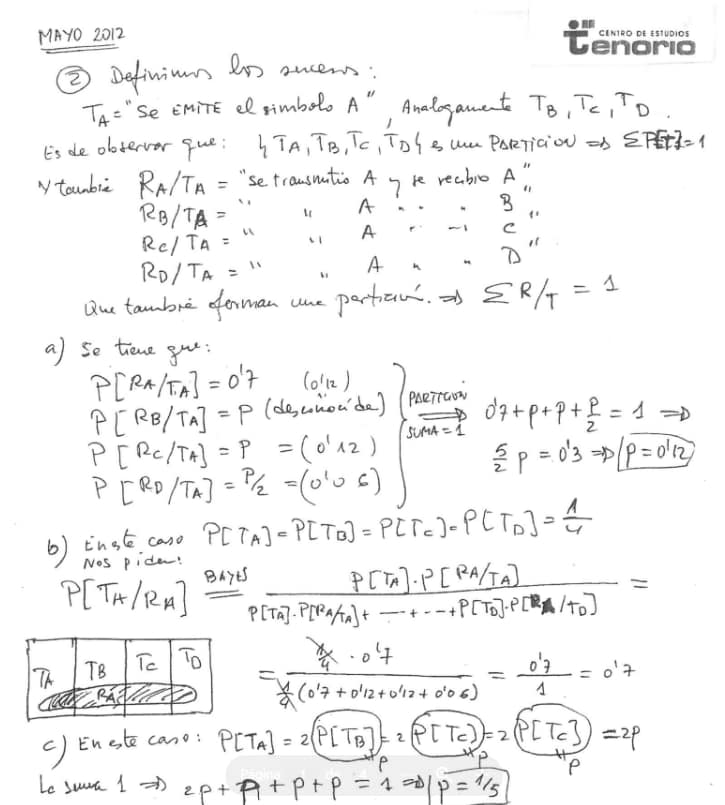 MAYO 2012
CENTRO DE ESTUDIOS
Tenorio
② Definimos los sucesos:
T_A = "Se EMITE el simbolo A", Analogamente T_B, T_C, T_D.
Es de observar que: {T_A, T_B, T_C, T_D} es una PARTICION => ΣP[T]=1
Y tambié R_A/T_A = "se transmitio A y se recibio A"
R_B/T_A = " " A " " B "
R_C/T_A = " " A " " C "
R_D/T_A = " " A " " D "
Que tambié forman una partición. => Σ R/T = 1
a) Se tiene que:
P[R_A/T_A] = 0'7 (0'12)
P[R_B/T_A] = P (desconocida)
P[R_C/T_A] = P = (0'12)
P[R_D/T_A] = P/2 = (0'06)
PARTICION => SUMA = 1
0'7 + p + p + p/2 = 1 =>
5/2 p = 0'3 => p = 0'12
b) En este caso P[T_A] = P[T_B] = P[T_C] = P[T_D] = 1/4
Nos piden:
P[T_A/R_A] BAYES = P[T_A]·P[R_A/T_A] / P[T_A]·P[R_A/T_A] + --- + --- + P[T_D]·P[R_A/T_D] =
= 1/4 · 0'7 / 1/4 (0'7 + 0'12 + 0'12 + 0'06) = 0'7 / 1 = 0'7
T_A T_B T_C T_D
R_A
c) En este caso: P[T_A] = 2 P[T_B] = 2 P[T_C] = 2 P[T_C] = 2p
p p p
La suma 1 => 2p + p + p + p = 1 => p = 1/5